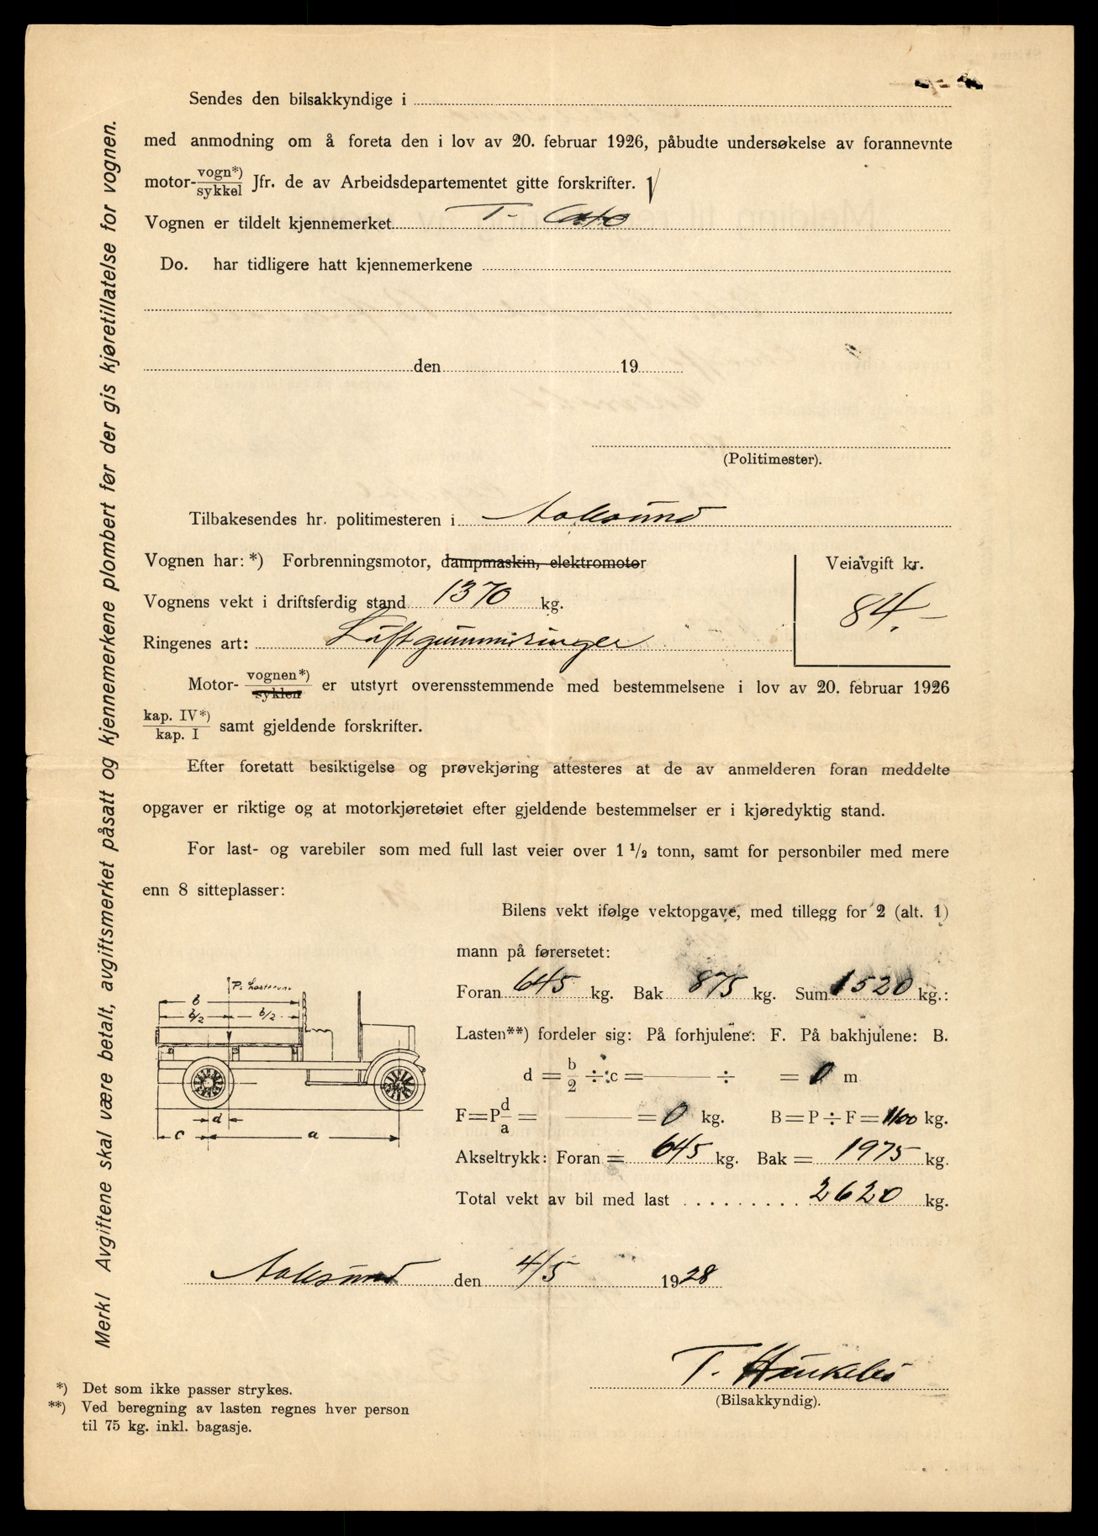 Sendes den bilsakkyndige i
med anmodning om å foreta den i lov av 20. februar 1926, påbudte undersøkelse av forannevnte
motor- vogn*) / sykkel Jfr. de av Arbeidsdepartementet gitte forskrifter.
Vognen er tildelt kjennemerket T-
Do. har tidligere hatt kjennemerkene
den 19
(Politimester).
Tilbakesendes hr. politimesteren i Aalesund
Vognen har: *) Forbrenningsmotor, dampmaskin, elektromotor
Veiavgift kr.
84.-
Vognens vekt i driftsferdig stand 1370 kg.
Ringenes art: Luftgummiringer
Motor- vognen*) / syklen er utstyrt overensstemmende med bestemmelsene i lov av 20. februar 1926
kap. IV*) / kap. I samt gjeldende forskrifter.
Efter foretatt besiktigelse og prøvekjøring attesteres at de av anmelderen foran meddelte
opgaver er riktige og at motorkjøretøiet efter gjeldende bestemmelser er i kjøredyktig stand.
For last- og varebiler som med full last veier over 1 1/2 tonn, samt for personbiler med mere
enn 8 sitteplasser:
Bilens vekt ifølge vektopgave, med tillegg for 2 (alt. 1)
mann på førersetet:
Foran 645 kg. Bak 875 kg. Sum 1520 kg.:
Lasten**) fordeler sig: På forhjulene: F. På bakhjulene: B.
d = b/2 ÷ c = ÷ = 0 m
F = P d/a = = 0 kg. B = P ÷ F = 1100 kg.
Akseltrykk: Foran = 645 kg. Bak = 1975 kg.
Total vekt av bil med last 2620 kg.
b
b/2 b/2
d
c a
Aalesund den 4/5 1928
(Bilsakkyndig).
*) Det som ikke passer strykes.
**) Ved beregning av lasten regnes hver person
til 75 kg. inkl. bagasje.
Merk! Avgiftene skal være betalt, avgiftsmerket påsatt og kjennemerkene plombert før der gis kjøretillatelse for vognen.